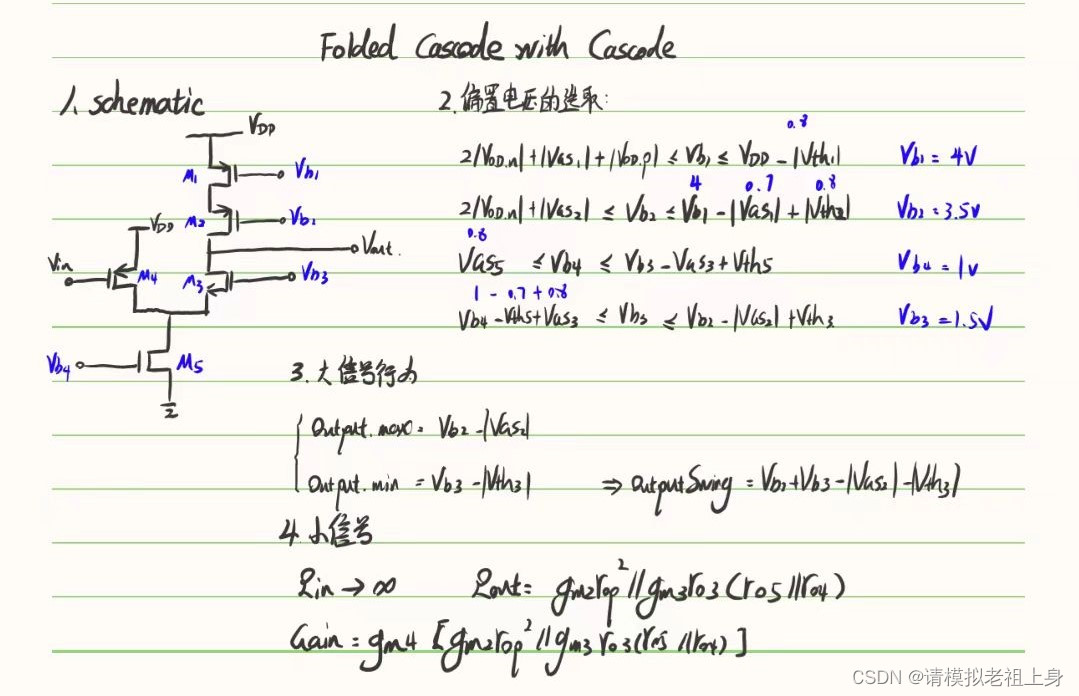 Folded Cascode with Cascode
1. schematic
VDD
M1
Vb1
M2
Vb2
VDD
Vout.
Vin
M4
M3
Vb3
Vb4
M5
2.偏置电压的选取:
0.8
2|VOD.n|+|VGS1|+|VOD.p| ≤ Vb1 ≤ VDD-|Vth1| Vb1 = 4V
4 0.7 0.8
2|VOD.n|+|VGS2| ≤ Vb2 ≤ Vb1-|VGS1|+|Vth2| Vb2 = 3.5V
0.8
VGS5 ≤ Vb4 ≤ Vb3-VGS3+Vth5 Vb4 = 1V
1 - 0.7 + 0.8
Vb4-Vth5+VGS3 ≤ Vb3 ≤ Vb2-|VGS2|+Vth3 Vb3 = 1.5V
3.大信号行为
Output.max = Vb2-|VGS2|
Output.min = Vb3-|Vth3| ⇒ Output Swing = Vb2+Vb3-|VGS2|-|Vth3|
4.小信号
Rin → ∞ Rout = gm2rop²//gm3ro3(ro5//ro4)
Gain = gm4[gm2rop²//gm3ro3(ro5//ro4)]
CSDN @请模拟老祖上身